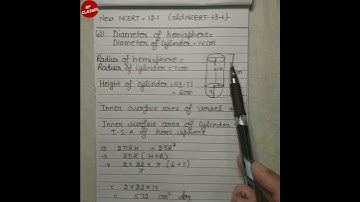 RP CLASSES
New NCERT = 12.1 (Old NCERT 13.1)
Q1) Diameter of hemisphere =
Diameter of Cylinder = 14 cm
Radius of hemisphere =
Radius of Cylinder = 7 cm
Height of Cylinder = (13-7)
= 6 cm
Inner surface area of Vessel =
Inner surface area of Cylinder +
I.S.A of hemisphere
⇒ 2πRH + 2πR²
⇒ 2πR (H+R)
⇒ 2 × 22 × 7 (6+7)
7
= 2 × 22 × 13
= 572 cm²